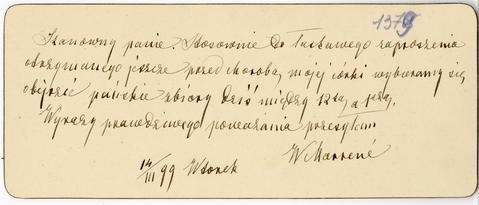 1379
Szanowny panie. Stosownie do łaskawego zaproszenia
otrzymanego jeszcze przed chorobą mojej córki wybieramy się
obejrzeć pańskie zbiory dziś między 12tą a 1szą.
Wyrazy prawdziwego poważania przesyłam
W Marrené
14/III 99 Wtorek